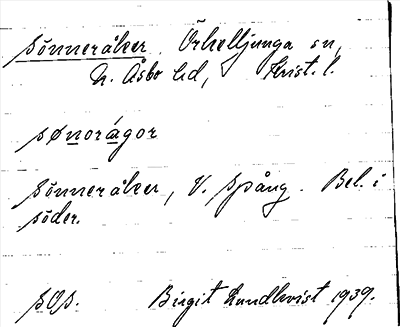 Sönneråker. Örkelljunga sn,
N. Åsbo hd, Krist. l.
sǿnorágor
Sönneråker, V. Spång. Bel. i
söder.
SOS. Birgit Lundkvist 1939.